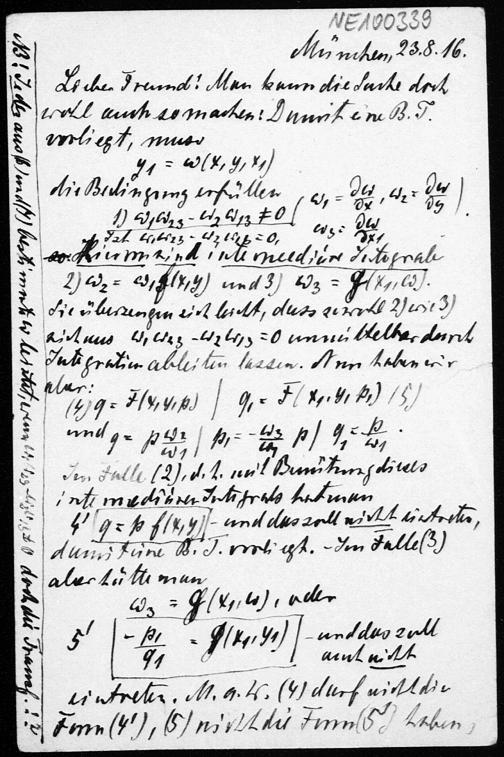 NE100339
München, 23.8.16.
Lieber Freund! Man kann die Sache doch
wohl auch so machen: Damit eine B. T.
vorliegt, muss
y₁ = ω(x, y, x₁)
die Bedingung erfüllen
1) ω₁ω₂₃ – ω₂ω₁₃ ≠ 0 ( ω₁ = ∂ω/∂x, ω₂ = ∂ω/∂y, ω₃ = ∂ω/∂x₁ ).
Ist ω₁ω₂₃ – ω₂ω₁₃ = 0,
so sind intermediäre Integrale
2) ω₂ = ω₁ f(x, y) und 3) ω₃ = g(x₁, ω).
Sie überzeugen sich leicht, dass sowohl 2) wie 3)
sich aus ω₁ω₂₃ – ω₂ω₁₃ = 0 unmittelbar durch
Integration ableiten lassen. Nun haben wir
aber:
(4) q = F(x, y, p) | q₁ = F(x₁, y₁, p₁) (5)
und q = p ω₂/ω₁ | p₁ = – ω₃/ω₁ p | q₁ = p/ω₁.
Im Falle (2), d. h. mit Benützung dieses
intermediären Integrals hat man
4' q = p f(x, y) – und das soll nicht eintreten,
damit eine B. T. vorliegt. – Im Falle (3)
aber hätte man
ω₃ = g(x₁, ω), oder
5' – p₁/q₁ = g(x₁, y₁) – und das soll
auch nicht
eintreten. M. a. W. (4) darf nicht die
Form (4'), (5) nicht die Form (5') haben,
NB! Ist der aus (5) und (4) bestimmte
doch die Transf. !!?